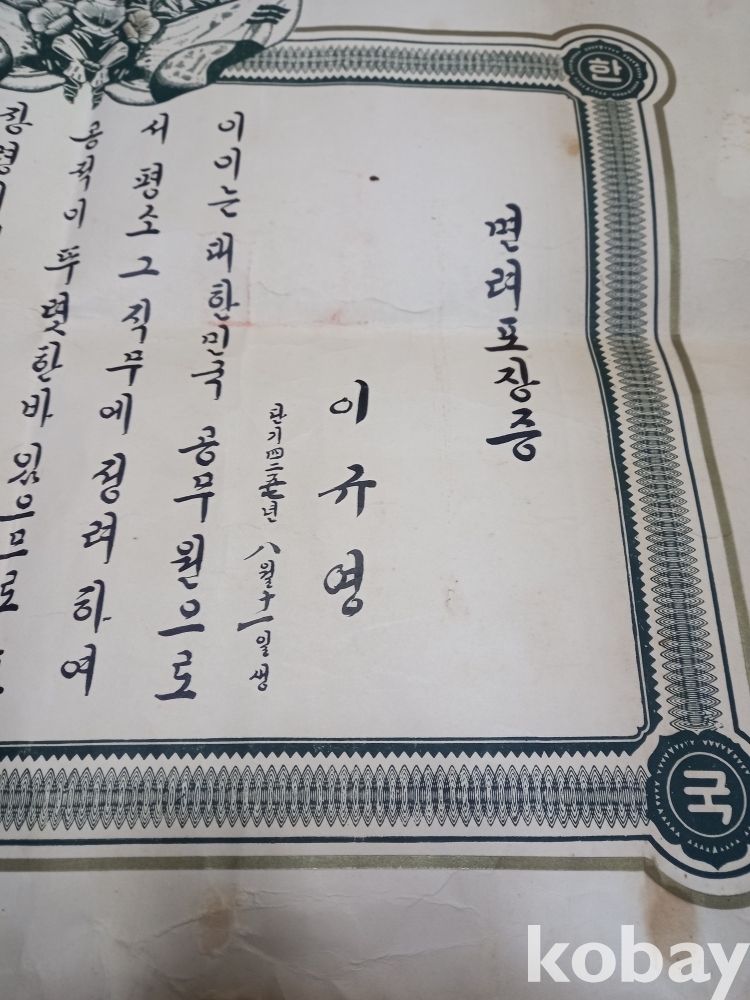 한
면려포장증
이규영
八월十一일생
이이는 대한민국 공무원으로
서 평소 그 직무에 정려하여
공적이 뚜렷한바 있으므로
장령
국
kobay